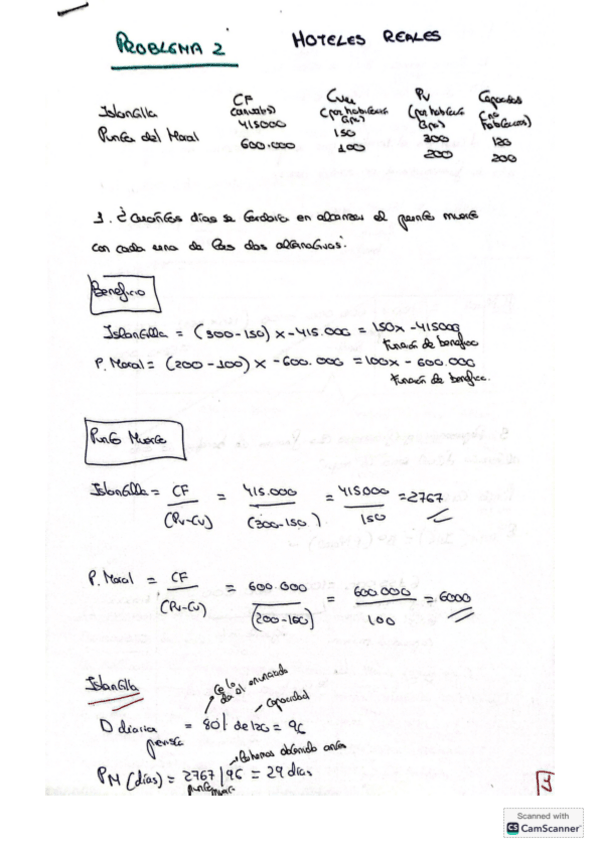 PROBLEMA 2 HOTELES REALES
CF CVu PV Capacidad
(anuales) (por habitación (por habitación (nº
día) día) habitaciones)
Islantilla 415000 150 300 120
Punta del Moral 600.000 100 200 200
1. ¿Cuántos días se tardara en alcanzar el punto muerto
con cada una de las dos alternativas?
Beneficio
Islantilla = (300-150) x -415.000 = 150x -415000
Función de beneficio
P. Moral = (200-100) x -600.000 = 100x - 600.000
Función de beneficio.
Punto Muerto
Islantilla = CF / (PV-CV) = 415.000 / (300-150) = 415000 / 150 = 2767
P. Moral = CF / (PV-CV) = 600.000 / (200-100) = 600.000 / 100 = 6000
Islantilla
Ce lo da el enunciado
capacidad
D diaria = 80% de 120 = 96
PM (días) = 2767 / 96 = 29 días
punto muerto
1
Scanned with
CS CamScanner